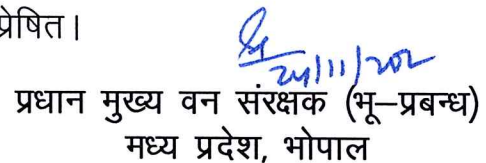 प्रेषित।
24/11/202
प्रधान मुख्य वन संरक्षक (भू–प्रबन्ध)
मध्य प्रदेश, भोपाल